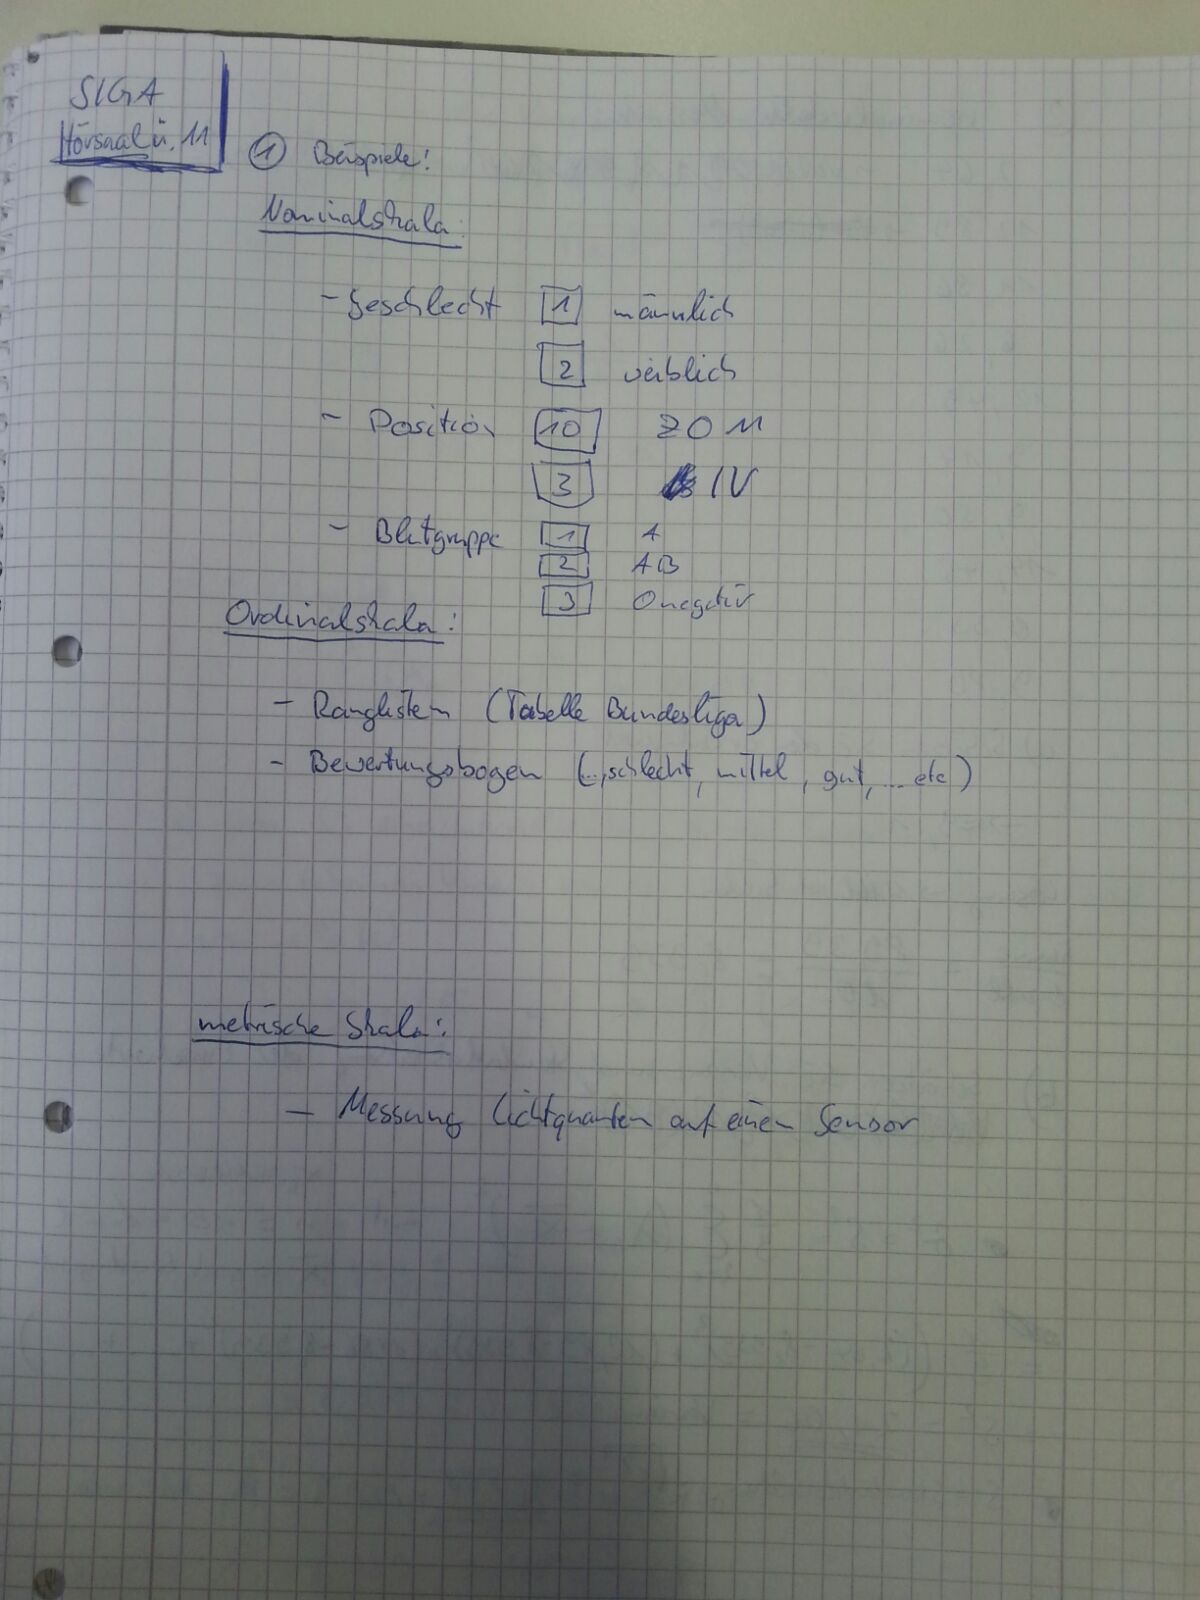 SIGA
Hörsaalü. 11
1 Beispiele:
Nominalskala:
- Geschlecht 1 männlich
2 weiblich
- Position 10 ZOM
3 IV
- Blutgruppe 1 A
2 AB
3 0negativ
Ordinalskala:
- Ranglisten (Tabelle Bundesliga)
- Bewertungsbogen (..,schlecht, mittel, gut, ... etc)
metrische Skala:
- Messung Lichtquanten auf einen Sensor